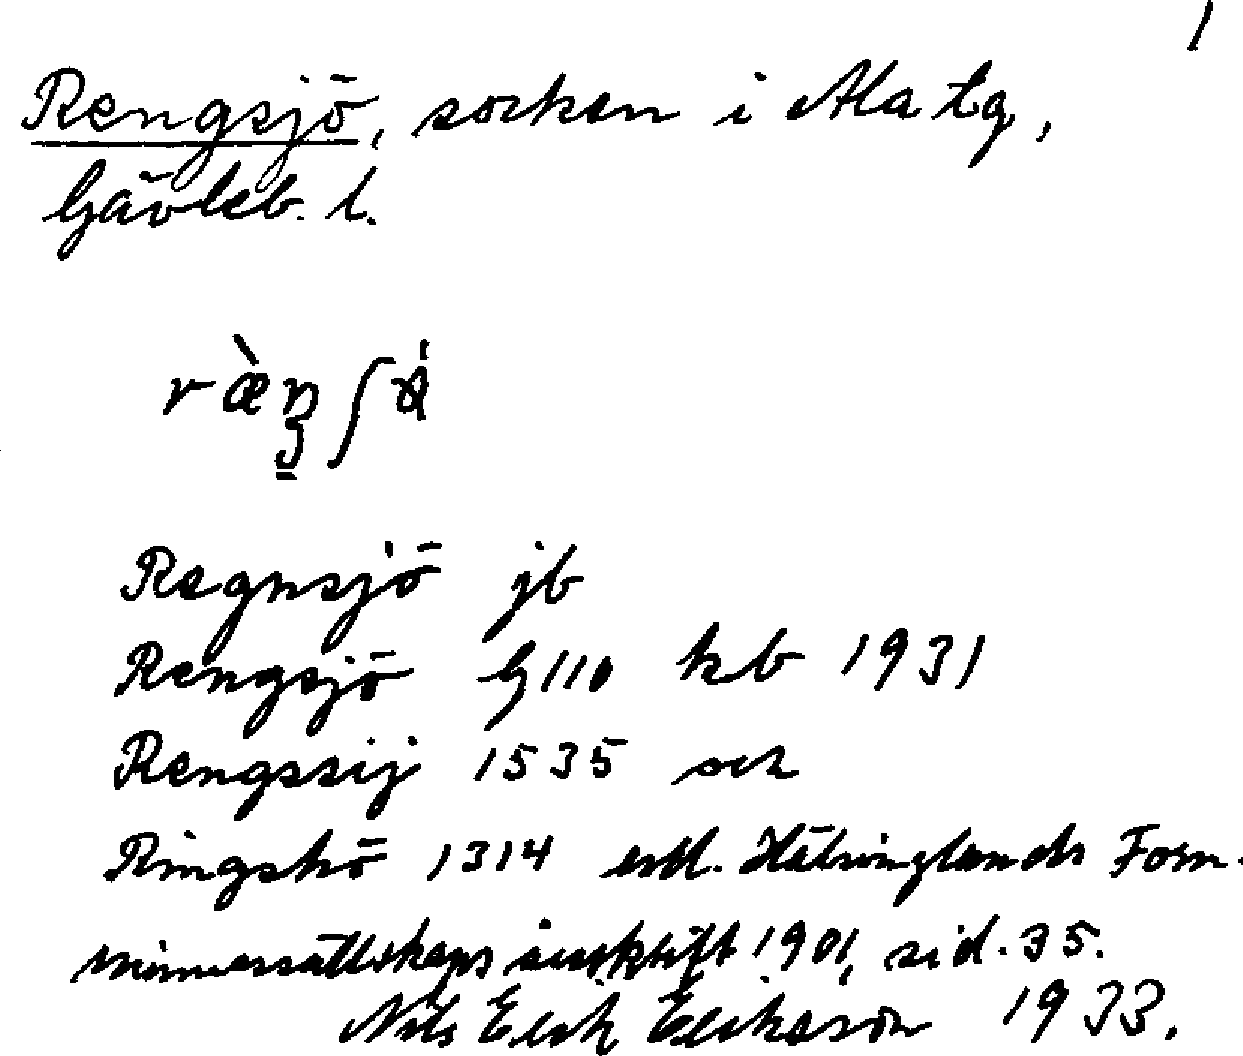 1
Rengsjö, socken i Ala tg,
Gävleb. l.
Regnsjö jb
Rengsjö G110 kb 1931
Rengssij 1535 
Ringshö 1314 enl. Hälsinglands Forn-
minnessällskaps årsskrift 1901, sid. 35.
Nils Erik Erikson 1933.